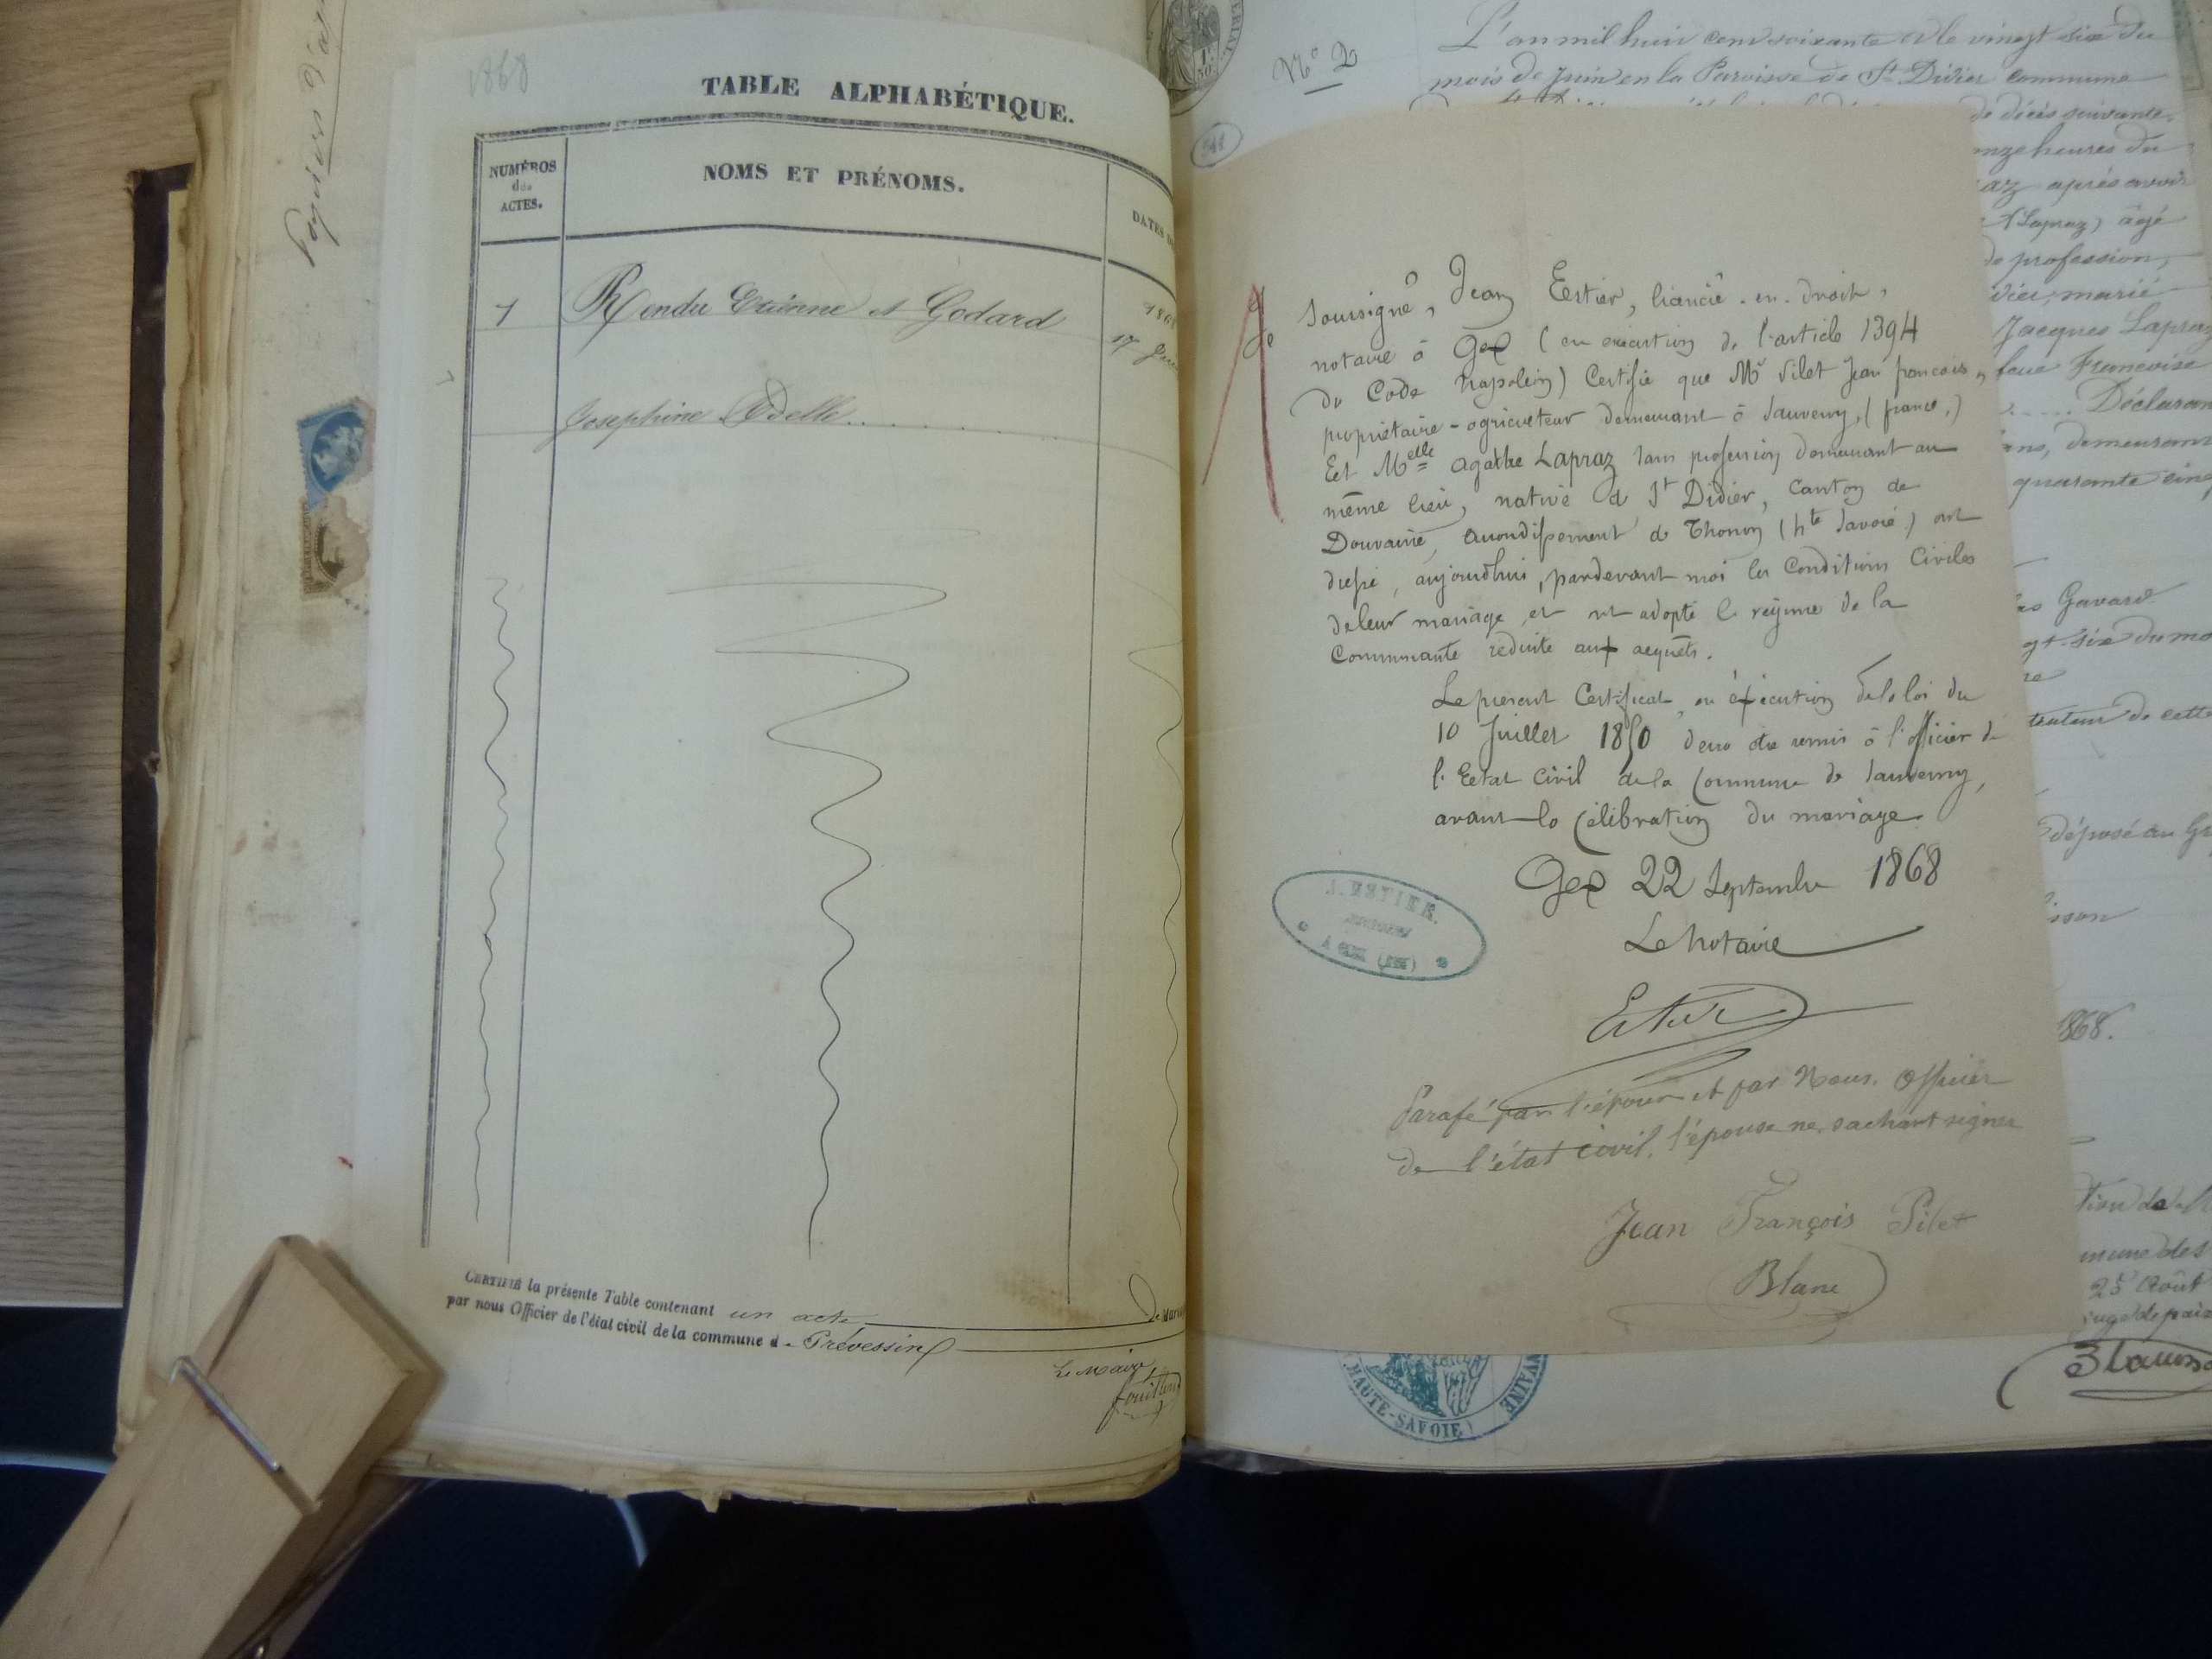 1868
TABLE ALPHABÉTIQUE.
NUMÉROS
des
ACTES.
NOMS ET PRÉNOMS.
DATES
1
Rendu Etienne et Godard
1868
17
Josephine Odelle
CERTIFIÉ la présente Table contenant un acte
par nous Officier de l'état civil de la commune d Prévessin
Le Maire
Papiers
N° 2
L'an mil huit cent soixante et le vingt six du
mois de Juin en la Paroisse de St Didier commune
de décès suivante
onze heures du
az après avoir
Lapraz) âgé
de profession,
dier, marié
Jacques Lapraz
feue Francoise
Déclaran
ans, demeurant
quarante cinq
Je soussigné, Jean Estier, licencié-en-droit,
notaire à Gex (en exécution de l'article 1394
du Code Napoléon) Certifie que Mr Pilet Jean françois,
propriétaire-agriculteur demeurant à Sauverny, (france,)
Et Melle Agathe Lapraz sans profession demeurant au
même lieu, native de St Didier, Canton de
Douvaine, arrondissement de Thonon (hte Savoie) ont
dressé, aujourdhui, pardevant moi les Conditions Civiles
de leur mariage, et ont adopté le régime de la
Communauté réduite aux acquêts.
Le présent Certificat, en exécution de la loi du
10 Juillet 1850 devra être remis à l'officier de
l'Etat Civil de la Commune de Sauverny,
avant la Célébration du mariage.
Gex 22 Septembre 1868
Le Notaire
Estier
J. ESTIER
À GEX (AIN)
Parafé par l'époux et par Nous. Officier
de l'état civil, l'épouse ne sachant signer
Jean François Pilet
Blanc
Gavard
gt-six du mo
de cette
déposé au Gr
1868.
mune des
25 Août
juge de paix
HAUTE-SAVOIE)
UVAINE